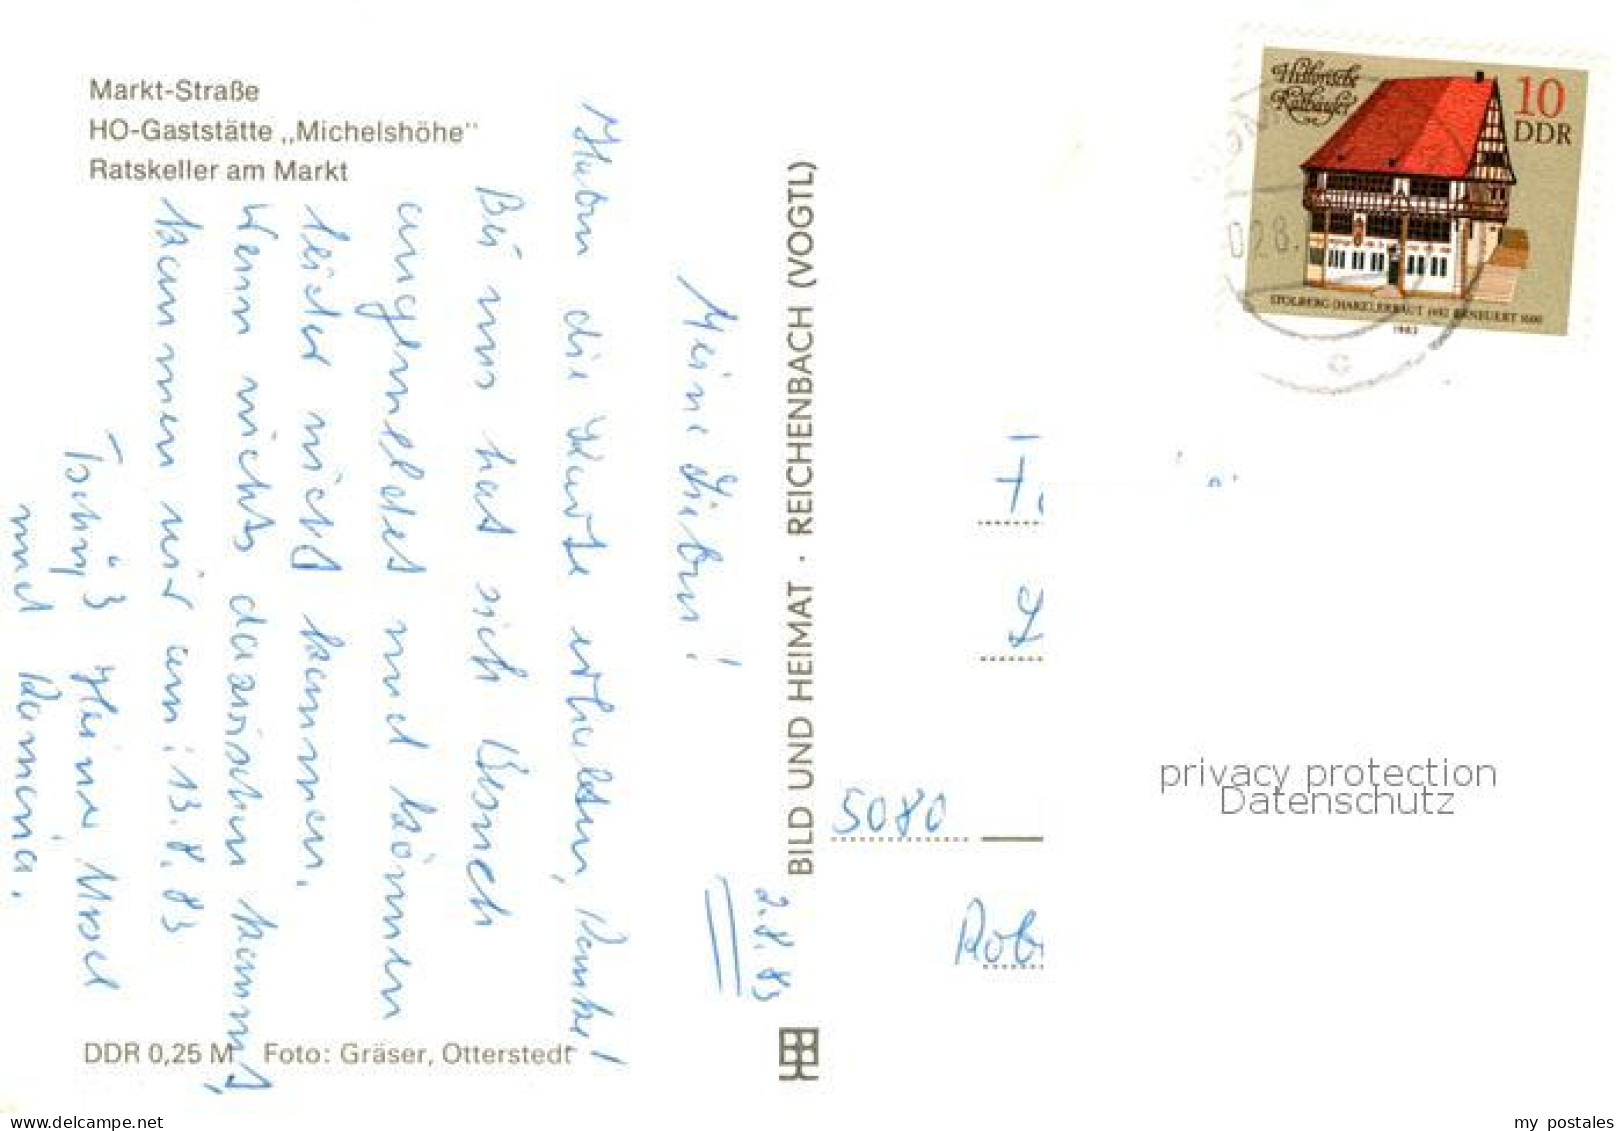 Markt-Straße
HO-Gaststätte „Michelshöhe"
Ratskeller am Markt
2.8.83
Meine Lieben!
Haben die Karte erhalten, Danke!
Bei uns hat sich Besuch
angemeldet und können
leider nicht kommen.
Wenn nichts dazwischen kommt,
kommen wir am 13.8.83
Tschüß Heine Ursel
und Ramona.
DDR 0,25 M Foto: Gräser, Otterstedt
BILD UND HEIMAT · REICHENBACH (VOGTL)
Historische
Rathäuser
10
DDR
STOLBERG (HARZ) ERBAUT 1482 ERNEUERT 1600
1983
5080
privacy protection
Datenschutz
www.delcampe.net
my_postales